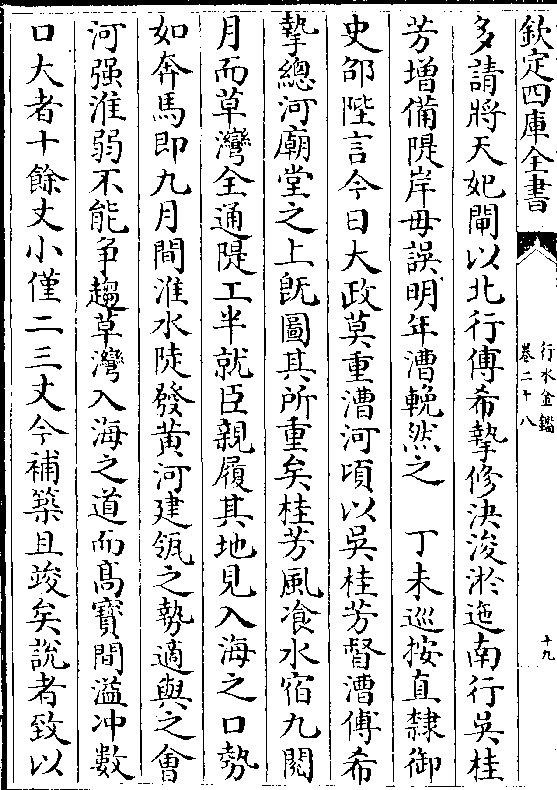 欽定四庫全書
行水金鑑
卷二十八
十九
多請將天妃閘以北行傅希摯修決浚淤迤南行吳桂
芳增備隄岸毋誤明年漕輓然之　丁未巡按直隸御
史邵陛言今日大政莫重漕河頃以吳桂芳督漕傅希
摯總河廟堂之上既圖其所重矣桂芳風飡水宿九閱
月而草灣全通隄工半就臣親履其地見入海之口勢
如奔馬即九月間淮水陡發黃河建瓴之勢適與之會
河强淮弱不能爭趨草灣入海之道而髙寶間溢冲數
口大者十餘丈小僅二三丈今補築且竣矣說者致以